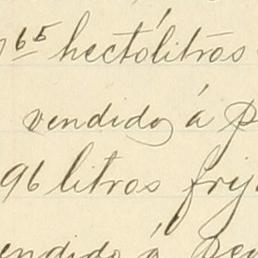 65 hectólitros
vendido á
96 litros
vendido á